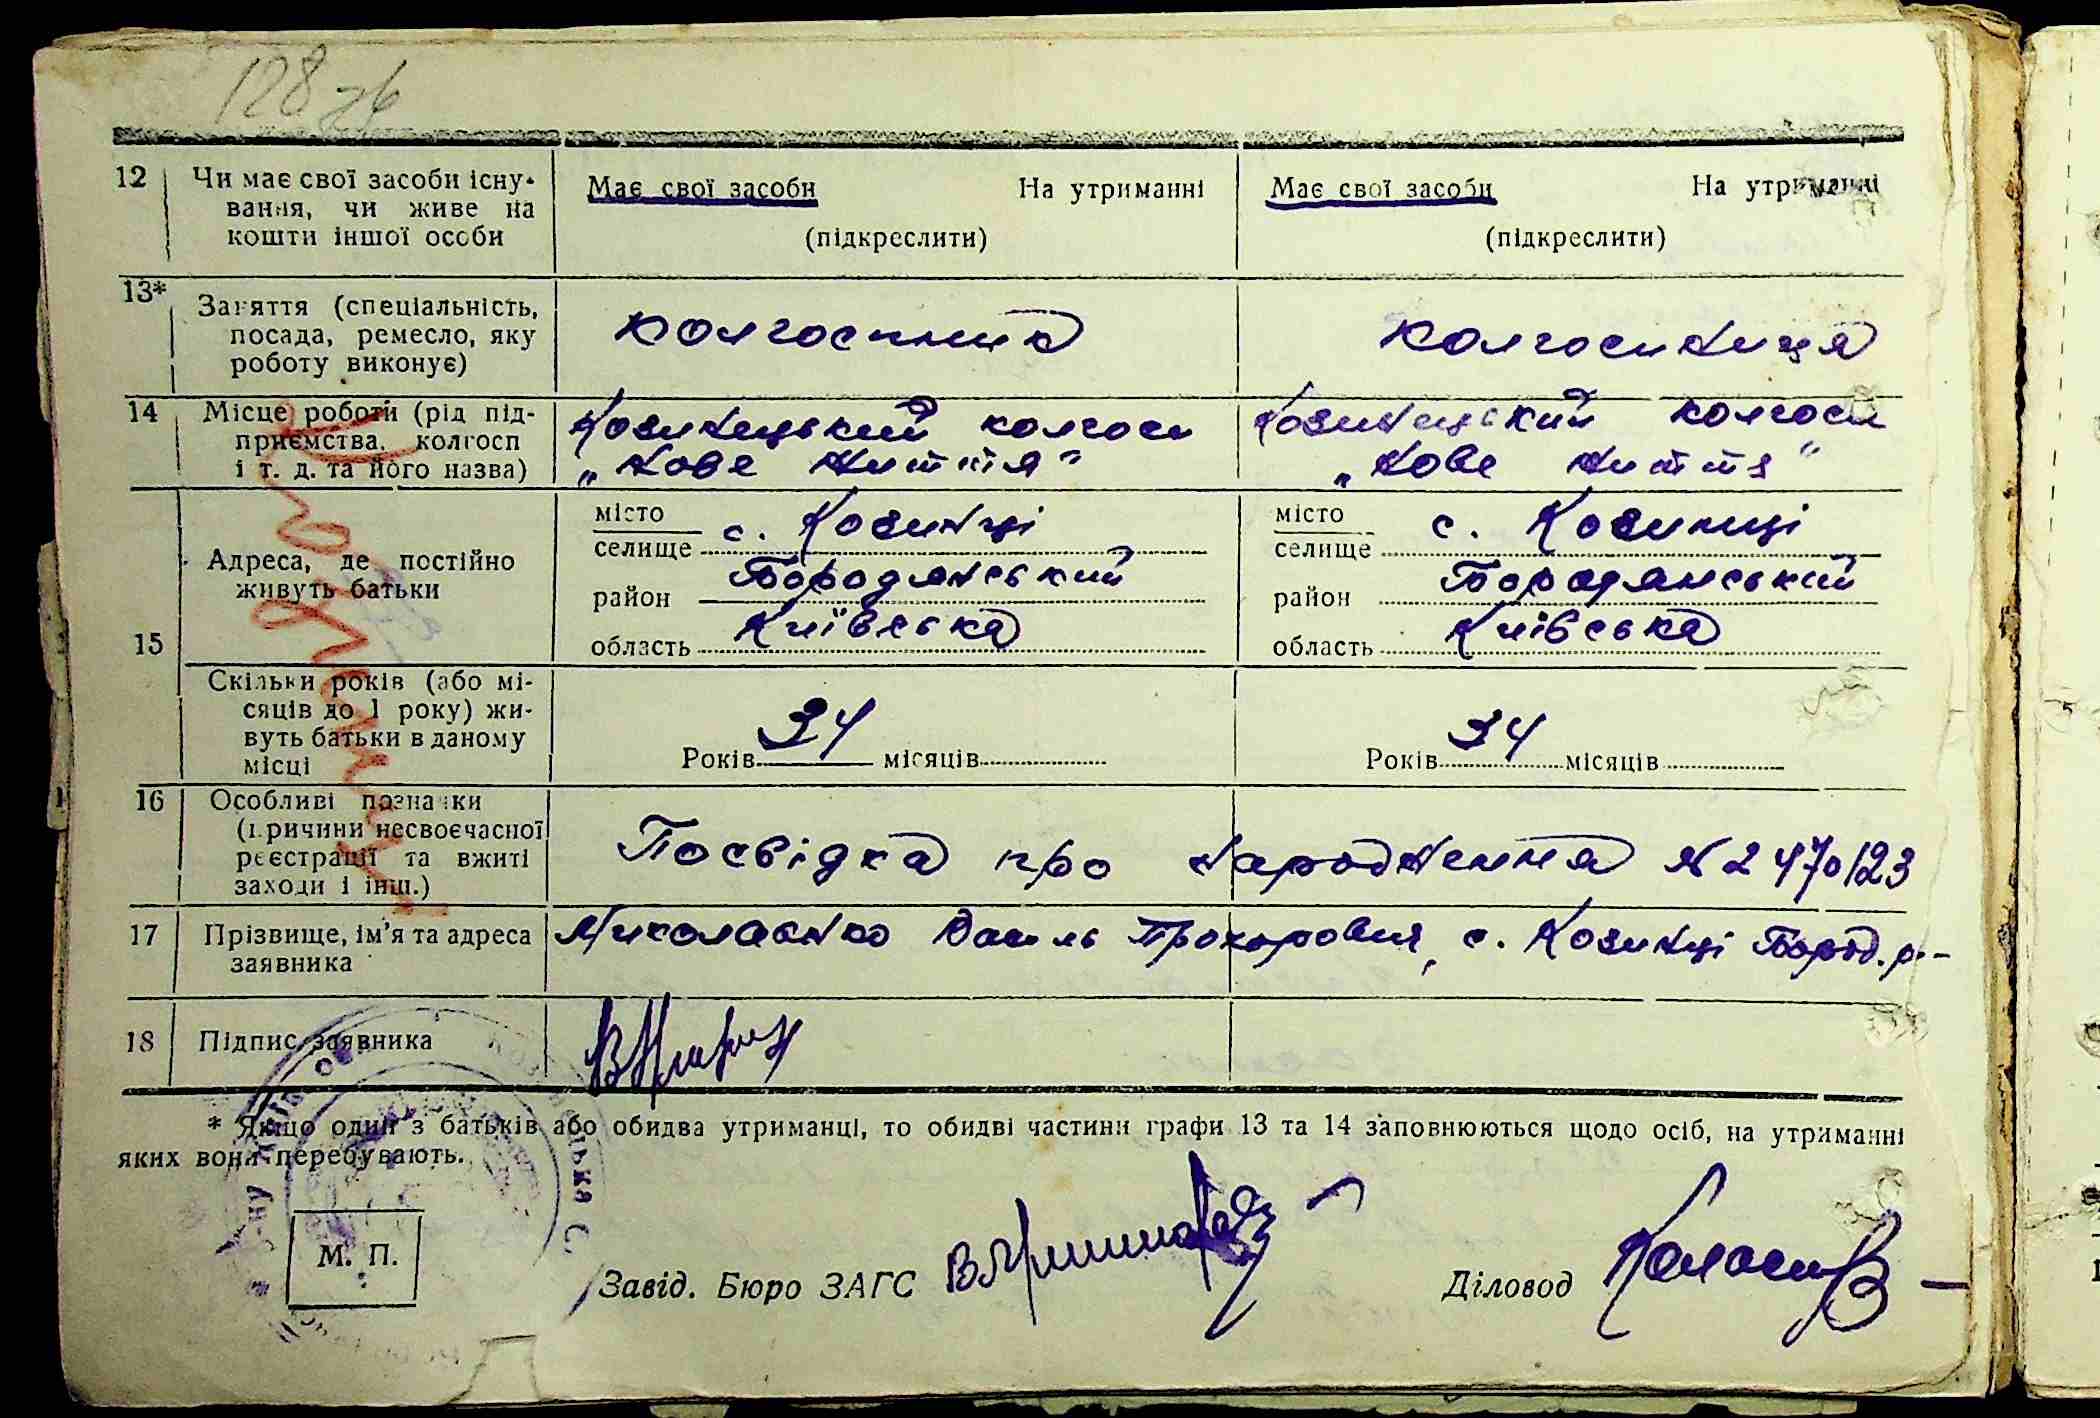 128 зв
12 Чи має свої засоби існу-
вання, чи живе на
кошти іншої особи
Має свої засоби На утриманні
(підкреслити)
Має свої засоби На утриманні
(підкреслити)
13* Заняття (спеціальність,
посада, ремесло, яку
роботу виконує)
колгоспник
колгоспниця
14 Місце роботи (рід під-
приємства, колгосп
і т. д. та його назва)
Козинецький колгосп
„Нове життя"
Козинецький колгосп
„Нове життя"
15
Адреса, де постійно
живуть батьки
місто
селище с. Козинці
район Бородянський
область Київська
місто
селище с. Козинці
район Бородянський
область Київська
Скільки років (або мі-
сяців до 1 року) жи-
вуть батьки в даному
місці
Років 34 місяців
Років 34 місяців
16 Особливі позначки
(причини несвоєчасної
реєстрації та вжиті
заходи і інш.)
Посвідка про народження № 2470/23
17 Прізвище, ім'я та адреса
заявника
Николаєнко Василь Прохорович, с. Козинці Бород. р-
18 Підпис заявника
* Якщо один з батьків або обидва утриманці, то обидві частини графи 13 та 14 заповнюються щодо осіб, на утриманні
яких вони перебувають.
М. П.
Завід. Бюро ЗАГС
Діловод